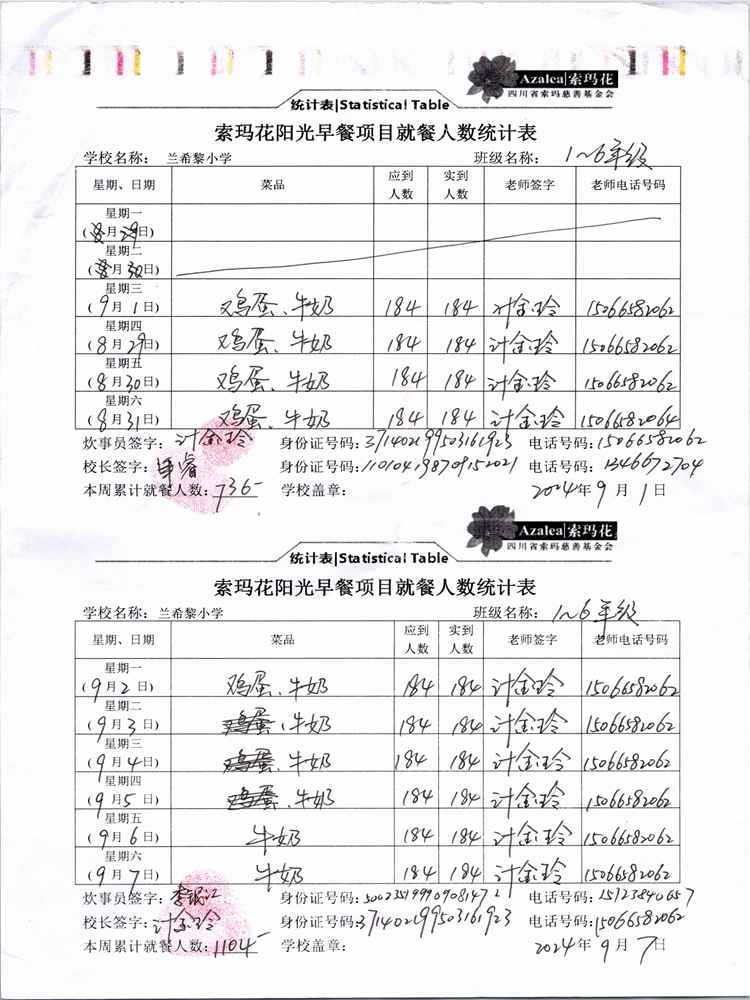 Azalea|索玛花
四川省索玛慈善基金会
统计表|Statistical Table
索玛花阳光早餐项目就餐人数统计表
学校名称： 兰希黎小学 班级名称： 1~6年级
星期、日期 菜品 应到人数 实到人数 老师签字 老师电话号码
星期一
(月29日)
星期二
(月30日)
星期三
(9月1日) 鸡蛋、牛奶 184 184 计金玲 15066582062
星期四
(8月29日) 鸡蛋、牛奶 184 184 计金玲 15066582062
星期五
(8月30日) 鸡蛋、牛奶 184 184 计金玲 15066582062
星期六
(8月31日) 鸡蛋、牛奶 184 184 计金玲 15066582064
炊事员签字：计金玲 身份证号码：371402199503161923 电话号码：15066582062
校长签字： 身份证号码：110104198709152021 电话号码：13466672704
本周累计就餐人数：736 学校盖章： 2024年9月1日
Azalea|索玛花
四川省索玛慈善基金会
统计表|Statistical Table
索玛花阳光早餐项目就餐人数统计表
学校名称： 兰希黎小学 班级名称： 1~6年级
星期、日期 菜品 应到人数 实到人数 老师签字 老师电话号码
星期一
(9月2日) 鸡蛋、牛奶 184 184 计金玲 15066582062
星期二
(9月3日) 鸡蛋、牛奶 184 184 计金玲 15066582062
星期三
(9月4日) 鸡蛋、牛奶 184 184 计金玲 15066582062
星期四
(9月5日) 鸡蛋、牛奶 184 184 计金玲 15066582062
星期五
(9月6日) 牛奶 184 184 计金玲 15066582062
星期六
(9月7日) 牛奶 184 184 计金玲 15066582062
炊事员签字： 身份证号码：500235199909081472 电话号码：15123840657
校长签字：计金玲 身份证号码：371402199503161923 电话号码：15066582062
本周累计就餐人数：1104 学校盖章： 2024年9月7日